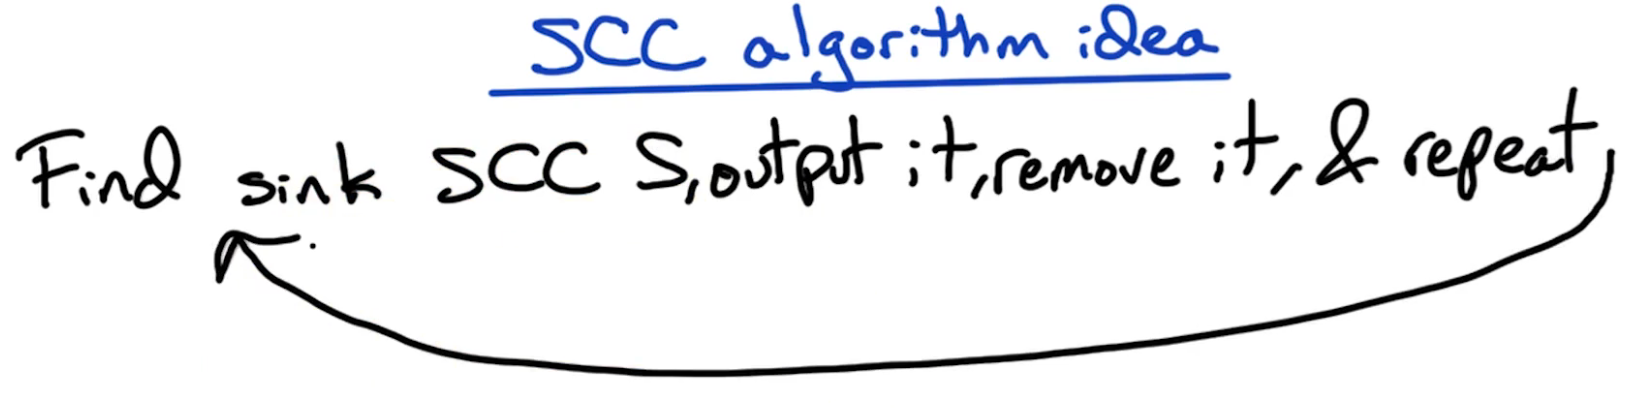 SCC algorithm idea
Find sink SCC S, output it, remove it, & repeat